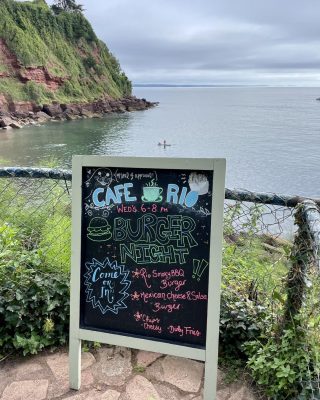 CAFE RIO
WED'S 6-8 PM
BURGER
NIGHT!!
Come
on
In!
Rio Smokey BBQ
Burger
Mexican Cheese & Salsa
Burger
Cheesy Dirty Fries